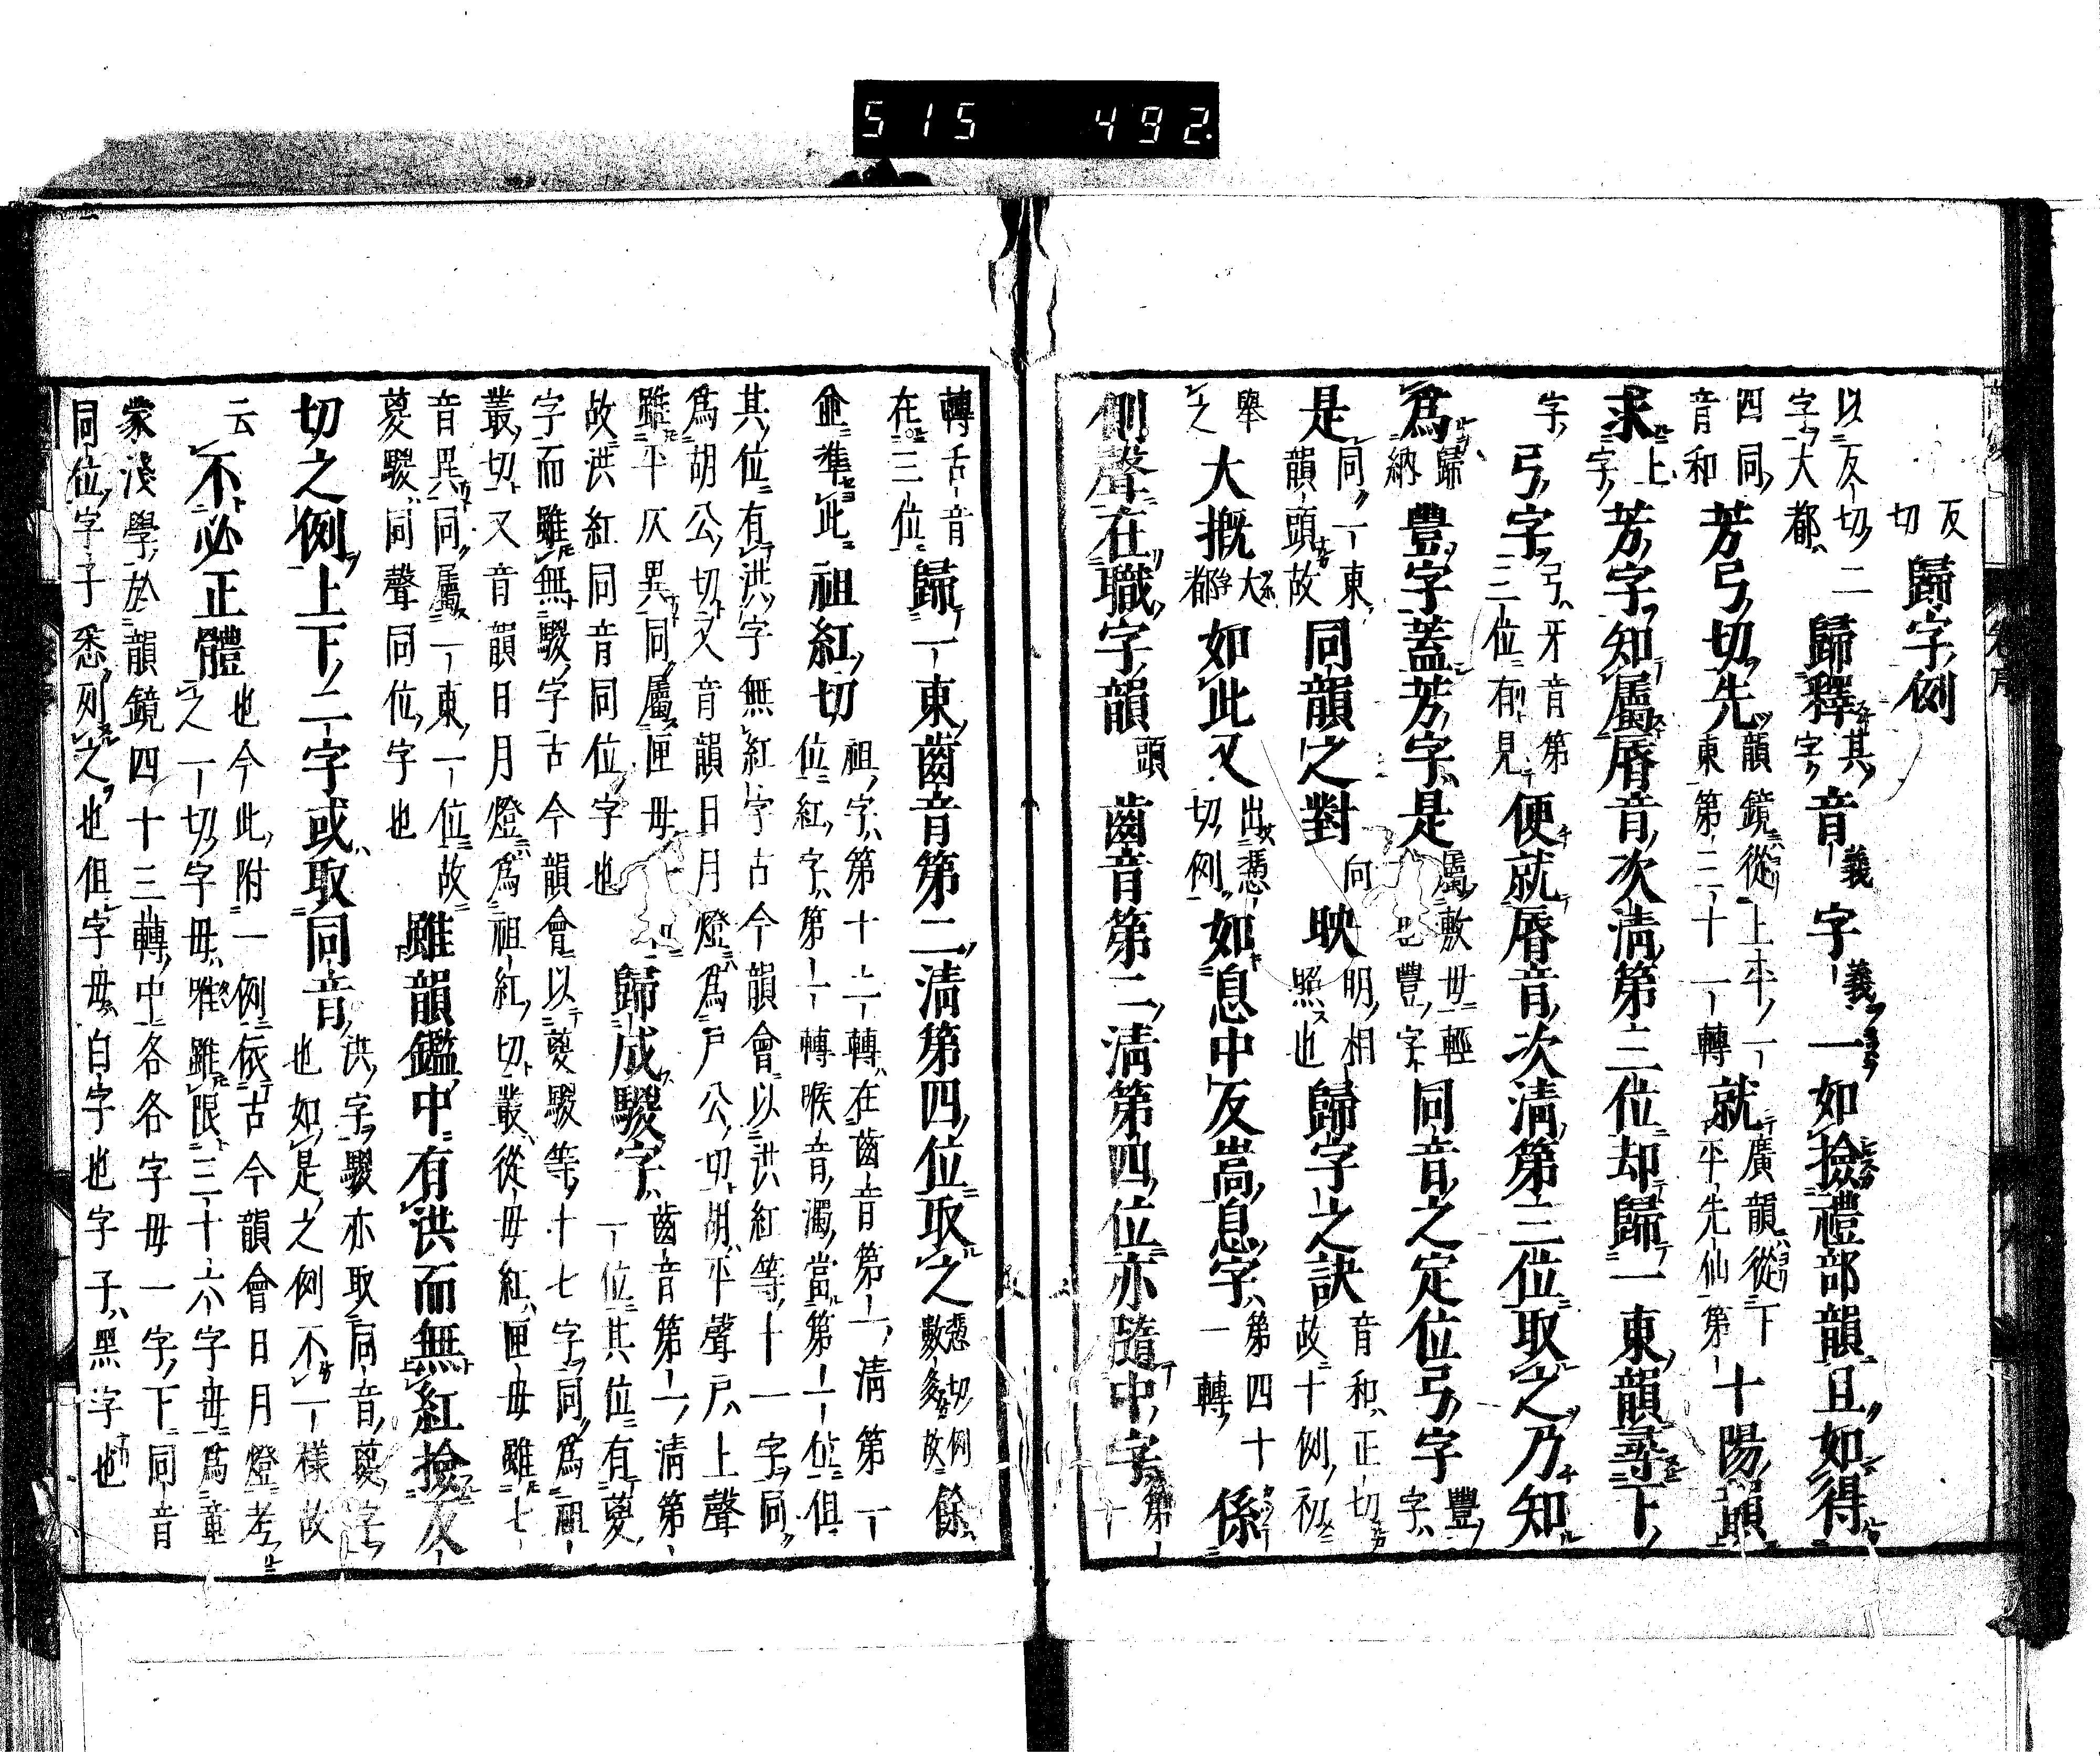 515 492
反切歸字例
以反切二字大都歸釋其字音義字義一如撿禮部韻且如得
四同音和芳弓切先韻鏡從上平一東第三十一轉就廣韻從下平先仙第十陽韻
求上字芳字知屬脣音次清第三位却歸一東韻尋下
字弓字弓牙音第三位有見便就脣音次清第三位取之乃知
為歸納豐字蓋芳字是屬敷母輕也豐字同音之定位弓字豐字
是同一東韻頭故同韻之對向映明相照也歸字之訣音和正切故十例初
舉之大概大都如此又出憑切例如息中反嵩息字第四十一轉係
側聲在職字韻頭齒音第二清第四位亦隨中字第十
轉舌音在三位歸一東齒音第二清第四位取之憑切例數多故餘
僉準此祖紅切祖字第十二轉在齒音第一清第一位紅字第一轉喉音濁當第一位俱
其位有洪字無紅字古今韻會以洪紅等十一字同
為胡公切又音韻日月燈為戶公切胡平聲戶上聲
雖平仄異同屬匣母故洪紅同音同位字也歸成騣字齒音第一清第一位其位有葼
字而雖無騣字古今韻會以葼騣等十七字同為祖
叢切又音韻日月燈為祖紅切叢從母紅匣母雖七
音異同屬一東一位故葼騣同聲同位字也雖韻鑑中有洪而無紅撿反
切之例上下二字或取同音洪字騣亦取同音葼字也如是之例不一樣故
云不必正體也今此附一例依古今韻會日月燈考之一切字母雖限三十六字母為童
蒙淺學於韻鏡四十三轉中各各字母一字下同音
同位字子悉列之也但字母白字也字子黑字也